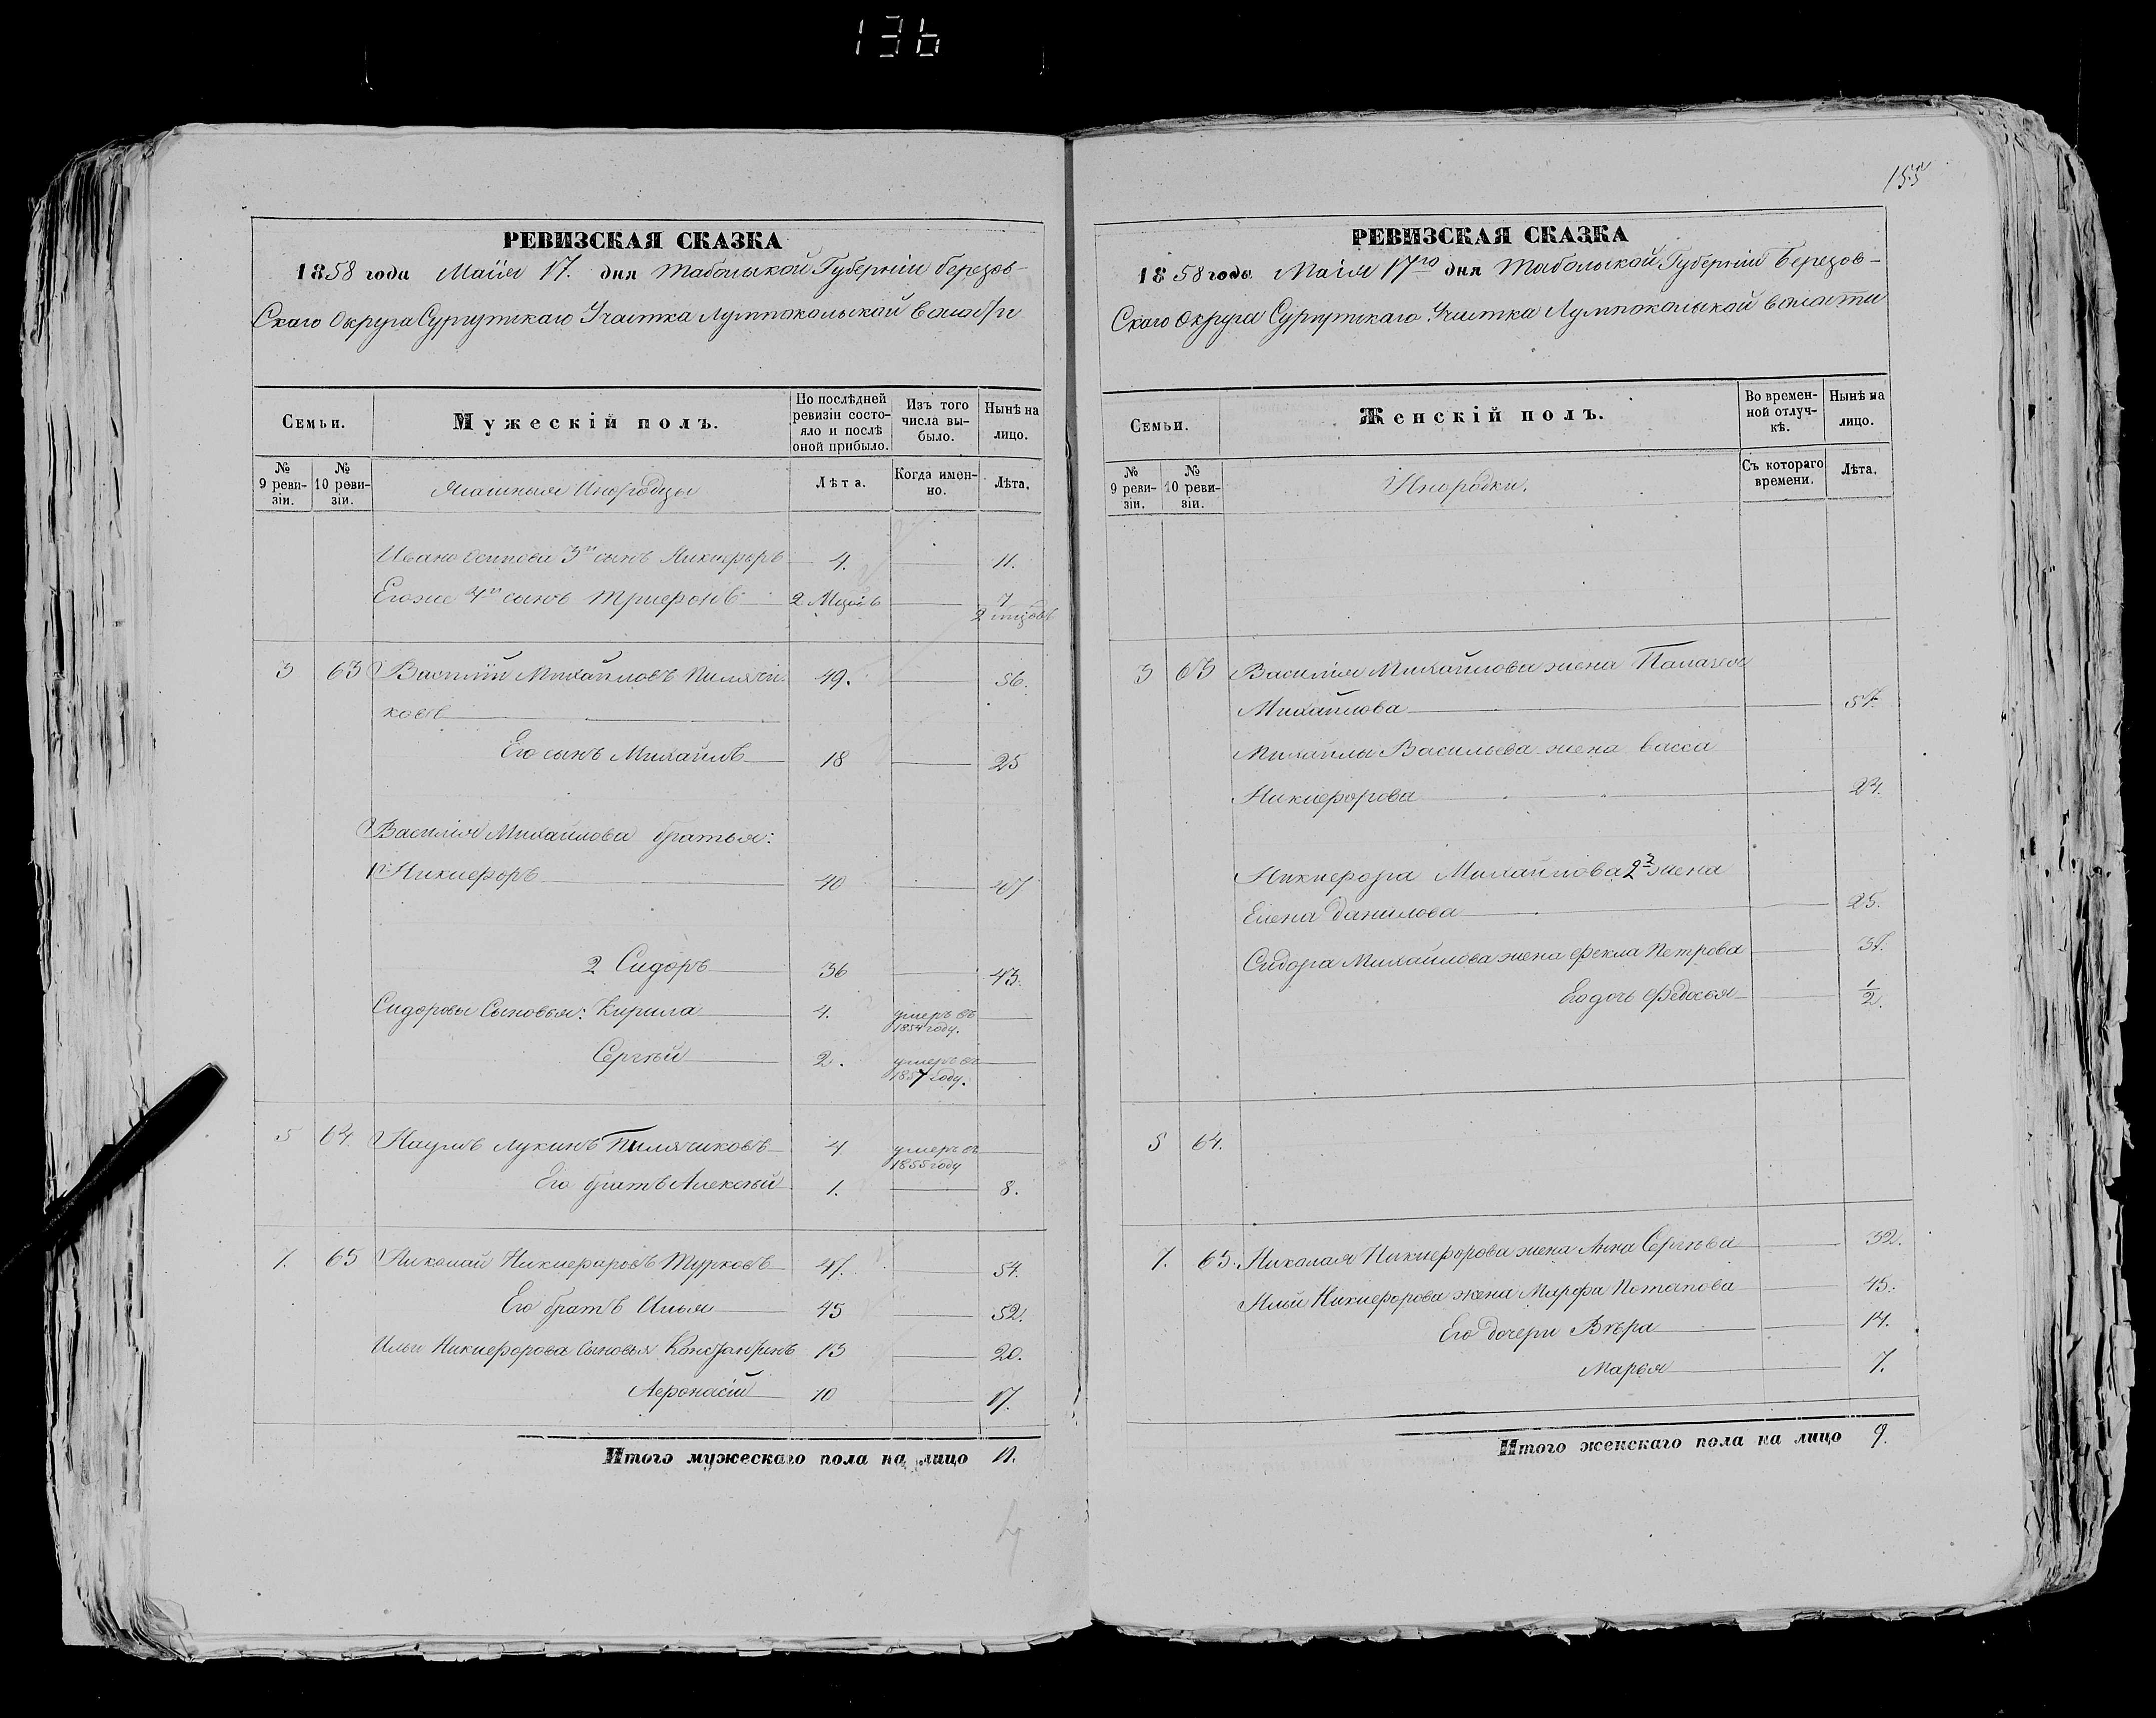 136
РЕВИЗСКАЯ СКАЗКА
1858 года Маія 17. дня Тобольской Губерніи Березов-
скаго Округа Сургутскаго Участка Лумпокольской волости
Семьи.
Мужескій полъ.
По послѣдней ревизіи состо-
яло и послѣ оной прибыло.
Изъ того числа вы-
было.
Нынѣ на лицо.
№ 9 реви-
зіи.
№ 10 реви-
зіи.
Ясашныя Инородцы
Лѣта.
Когда имен-
но.
Лѣта.
Ивана Осипова 3й сынъ Никифоръ 4. 11.
Егоже 4й сынъ Трифонъ 2 Мѣсяцъ 7
3 63 Василій Михайловъ Пилячи 49. 56.
ковъ
Его сынъ Михайлъ 18 25
Василія Михайлова братья:
1й Никифоръ 40 47
2 Сидоръ 36 43.
Сидоровы Сыновья: Кирила 4. умеръ въ
1854 году.
Сергѣй 2. умеръ въ
1857 году.
5 64. Наумъ Лукинъ Пилячиковъ 4 умеръ въ
1855 году
Его братъ Алексѣй 1. 8.
1. 65 Николай Никифоровъ Турковъ 47. 54.
Его братъ Илья 45 52.
Ильи Никифорова сыновья Константинъ 13 20.
Афонасій 10 17.
Итого мужескаго пола на лицо 11.
155
РЕВИЗСКАЯ СКАЗКА
1858 года Маія 17го дня Тобольской Губерніи Березов-
скаго Округа Сургутскаго Участка Лумпокольской волости
Семьи.
Женскій полъ.
Во времен-
ной отлуч-
кѣ.
Нынѣ на лицо.
№ 9 реви-
зіи.
№ 10 реви-
зіи.
Инородки.
Съ котораго времени.
Лѣта.
3 63 Василія Михайлова жена Палагея
Михайлова 57.
Михайлы Васильева жена Васса
Никифорова 24.
Никифора Михайлова 2я жена
Елена Данилова 25.
Сидора Михайлова жена Фекла Петрова 37.
Его дочь Федосья 1/2.
5 64.
1. 65. Николая Никифорова жена Анна Сергѣева 32.
Ильи Никифорова жена Марфа Потапова 45.
Его дочери Вѣра 14.
Марья 7.
Итого женскаго пола на лицо 9.